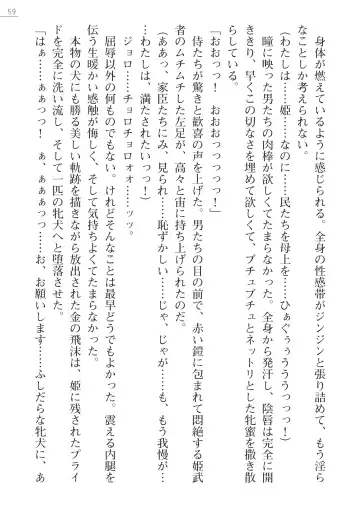 59
身体が燃えているように感じられる。全身の性感帯がジンジンと張り詰めて、もう淫ら
なことしか考えられない。
(わたしは……姫……なのに……民たちを母上を……ひぁぐぅぅうううっっっ!)
瞳に映った男たちの肉棒が欲しくてたまらなかった。全身から発汗し、陰唇は完全に開
ききり、早くこの切なさを埋めて欲しくて、プチュプチュとネットリとした牝蜜を撒き散
らしている。
「おおっっ! おおおっっっっっ!」
侍たちが驚きと歓喜の声を上げた。男たちの目の前で、赤い鎧に包まれて悶絶する姫武
者のムチムチした左足が、高々と宙に持ち上げられたのだ。
(あああっ、家臣たちにみ、見られ……恥ずかしい……じゃ、じゃが……も、もう我慢が…
…わたしは、満たされたいっっ!)
ジョロ……チョロチョロォォ……ッッ。
屈辱以外の何ものでもない。けれどそんなことは最早どうでもよかった。震える内腿を
伝う生暖かい感触が悔しく、そして気持ちよくてたまらなかった。
本物の犬にも勝る美しい軌跡を描きながら放出された金の飛沫は、姫に残されたプライ
ドを完全に洗い流し、そして一匹の牝犬へと堕落させた。
「はぁ……ぁぁっっ! ぁ、あぁぁっっ……お、お願いします……ふしだらな牝犬に、あ